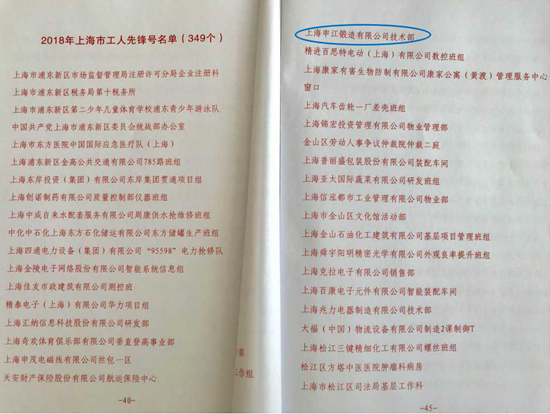 2018年上海市工人先锋号名单（349个）
上海市浦东新区市场监督管理局注册许可分局企业注册科
上海市浦东新区税务局第十税务所
上海市浦东新区第二少年儿童体育学校浦东青少年游泳队
中国共产党上海市浦东新区委员会统战部办公室
上海市东方医院中国国际应急医疗队（上海）
上海浦东新区金高公共交通有限公司785路班组
上海东岸投资（集团）有限公司东岸集团贯通项目组
上海创诺制药有限公司质量控制部仪器班组
上海中成自来水配套服务有限公司周康供水抢修班组
中化中石化上海东方石化储运有限公司东方储罐生产班组
上海四通电力设备（集团）有限公司“95598”电力抢修队
上海金陵电子网络股份有限公司智能系统信息组
上海佳友市政建筑有限公司测控班
精泰电子（上海）有限公司华力项目组
上海汇纳信息科技股份有限公司研发部
上海奇欢体育俱乐部有限公司垂直登高事业部
上海申茂电磁线有限公司丝包一区
天安财产保险股份有限公司航运保险中心
-40-
工作组
上海申江锻造有限公司技术部
精进百思特电动（上海）有限公司数控班组
上海康家有害生物防制有限公司康家公寓（黄渡）管理服务中心
窗口
上海汽车齿轮一厂差壳班组
上海锦宏投资管理有限公司物业管理部
金山区劳动人事争议仲裁院仲裁二庭
上海普丽盛包装股份有限公司装配车间
上海亚太国际蔬菜有限公司研发班组
上海信泓都市工业管理有限公司物业部
上海市金山区文化馆活动部
上海金山石油化工建筑有限公司基层项目管理班组
上海舜宇阳明精密光学有限公司外观良率提升班组
上海克拉电子有限公司销售部
上海百康电子元件有限公司智能装配车间
上海兆力电器制造有限公司技术部
大福（中国）物流设备有限公司制造2课制御T
上海松江三键精细化工有限公司螺丝班组
松江区方塔中医医院肿瘤科病房
上海市松江区司法局基层工作科
-45-